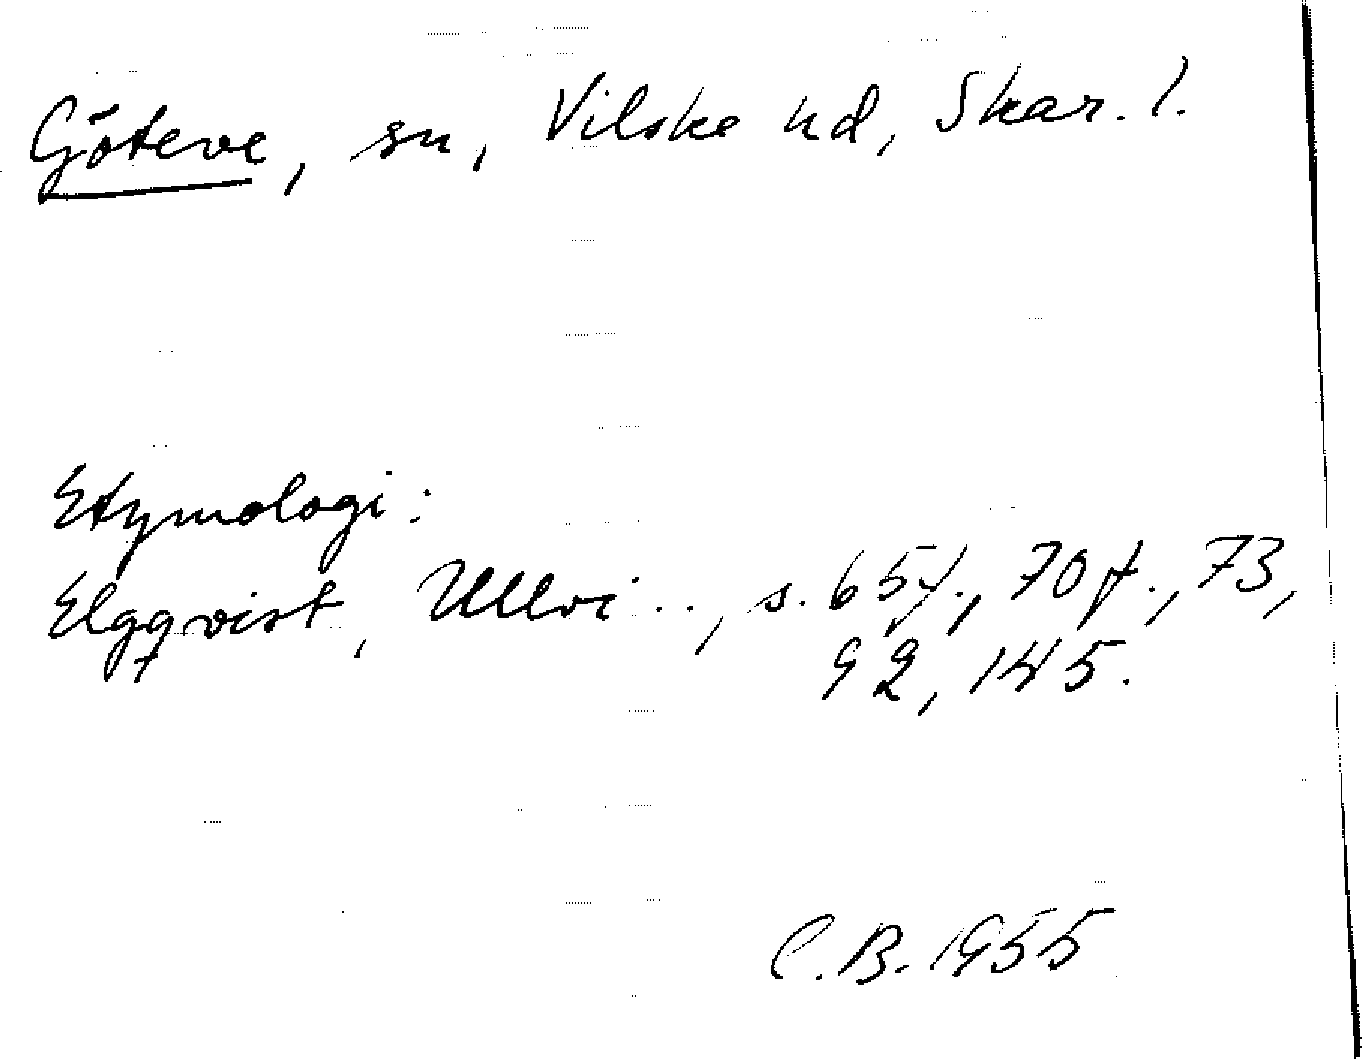 Göteve, sn, Vilske hd, Skar. l.
Etymologi:
Elgqvist, Ullvi..., s. 65f., 70f., 73,
92, 145.
C.B. 1955